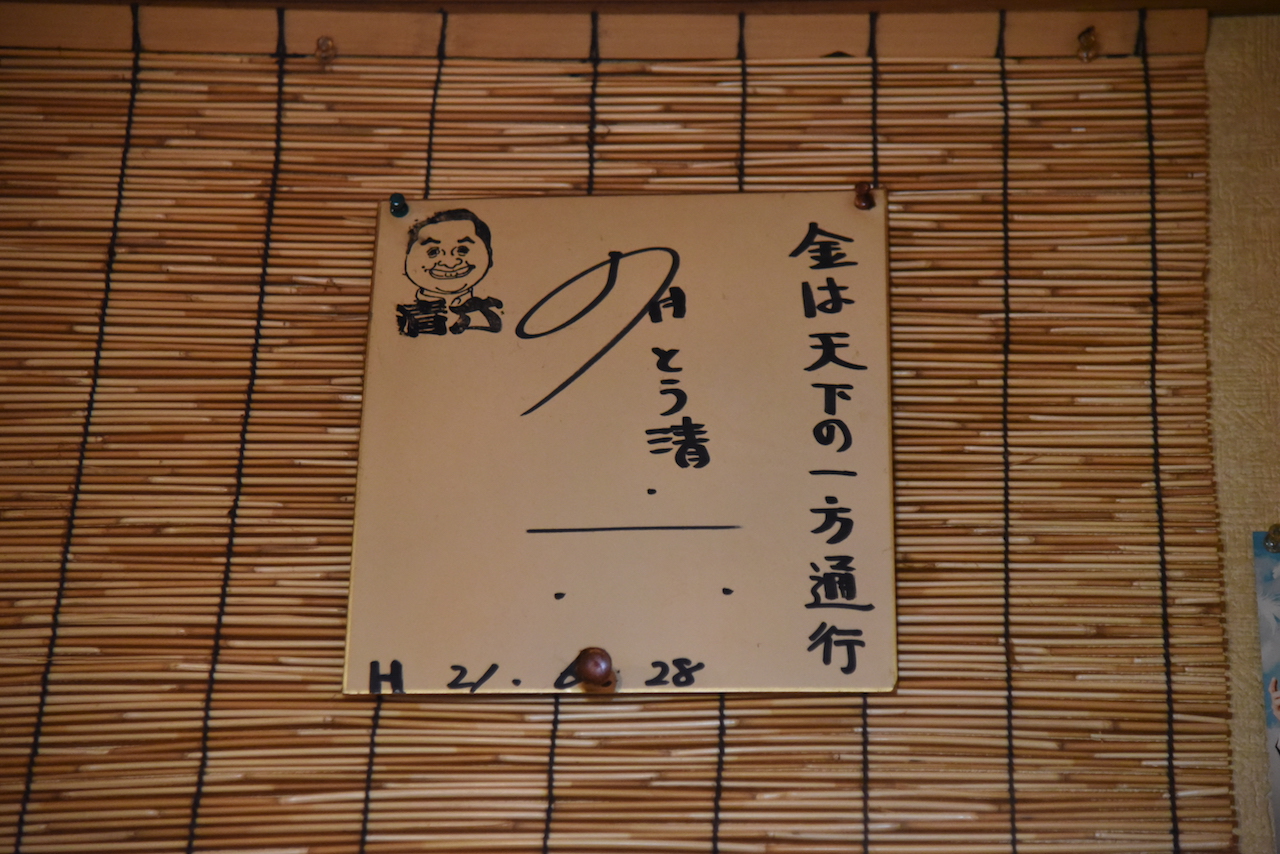 金は天下の一方通行
斉とう清六
清六
H 21. 6. 28